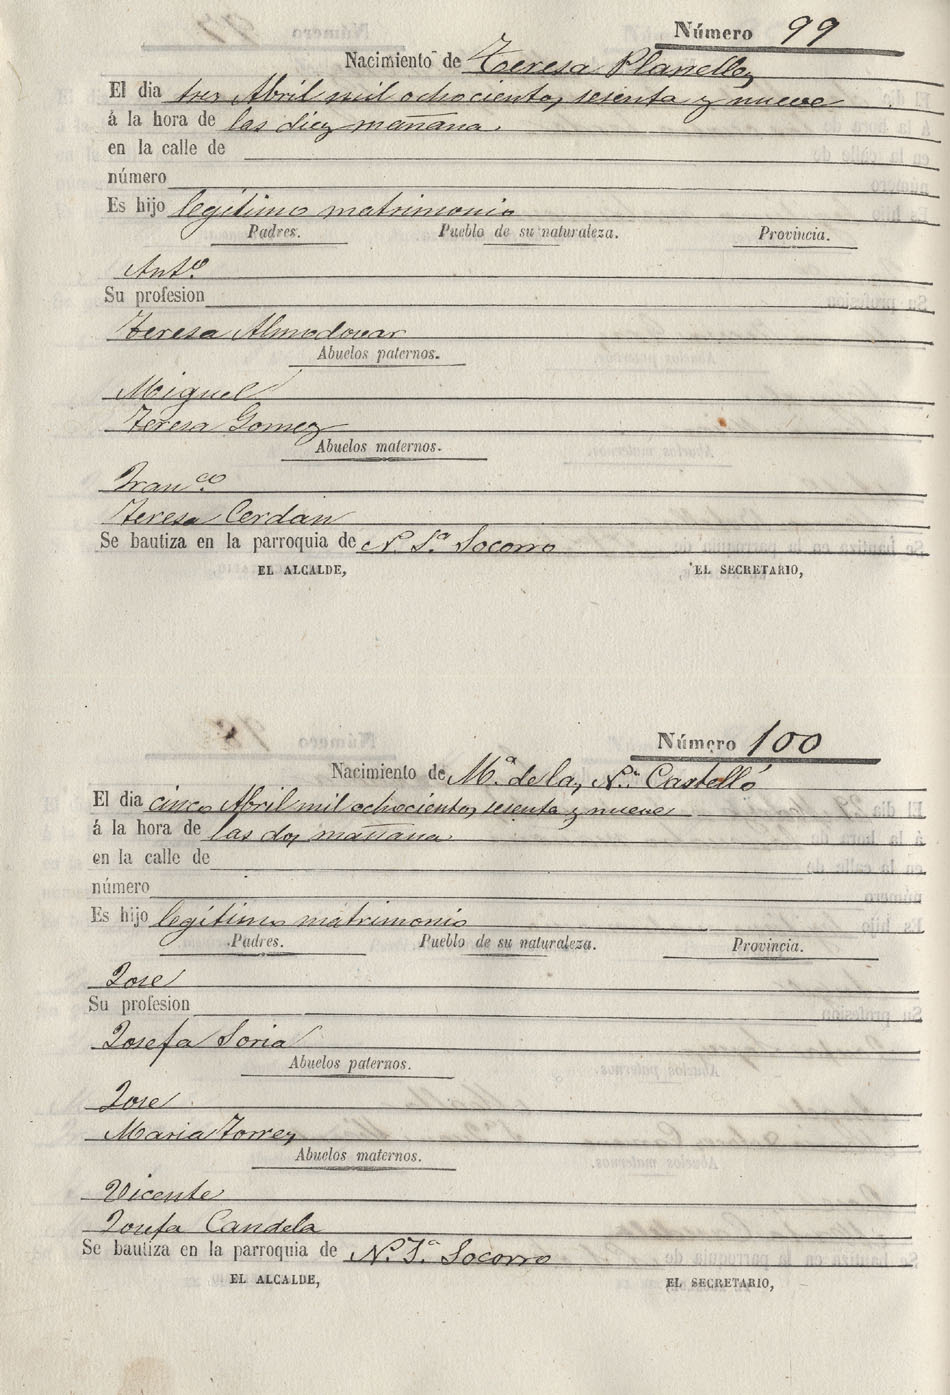 Número 99
Nacimiento de Teresa Planelles
El dia tres Abril mil ochocientos sesenta y nueve
á la hora de las diez mañana.
en la calle de
número
Es hijo legítimo matrimonio
Padres. Pueblo de su naturaleza. Provincia.
Antº
Su profesion
Teresa Almodovar
Abuelos paternos.
Miguel
Teresa Gomez
Abuelos maternos.
Franco.
Teresa Cerdan
Se bautiza en la parroquia de N. Sª Socorro
EL ALCALDE, EL SECRETARIO,
Número 100
Nacimiento de Mª de las Nˢ Castelló
El dia cinco Abril mil ochocientos sesenta y nueve
á la hora de las dos mañana
en la calle de
número
Es hijo legítimo matrimonio
Padres. Pueblo de su naturaleza. Provincia.
José
Su profesion
Josefa Soria
Abuelos paternos.
José
Maria Torres
Abuelos maternos.
Vicente
Josefa Candela
Se bautiza en la parroquia de N. Sª Socorro
EL ALCALDE, EL SECRETARIO,